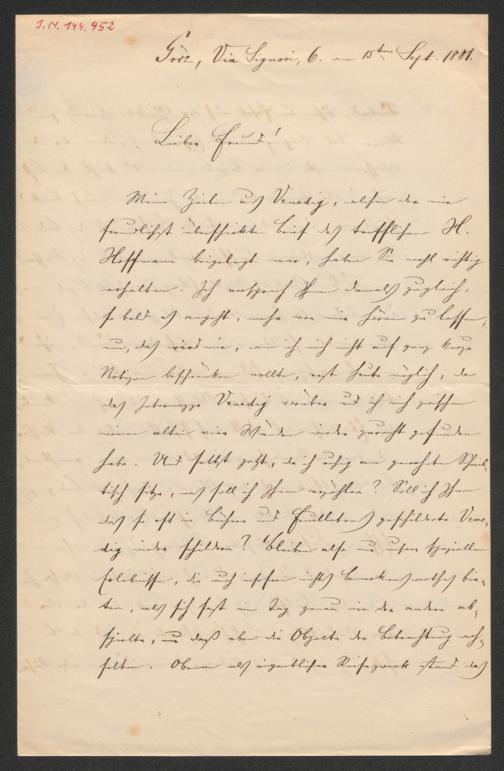 J.N. 144.952
Görz, Via Signori, 6. am 15ten Sept. 1881.
Lieber Freund!
Meine Zeilen aus Venedig, denen der mir
freundlichst überschickte Brief des trefflichen H.
Hoffmann beigelegt war, haben Sie wohl richtig
erhalten. Ich versprach Ihnen damals zugleich,
so bald es angeht, mehr von mir hören zu lassen,
nun, das wird mir, wenn ich mich nicht auf ganz kurze
Notizen beschränken wollte, erst heute möglich, da
das Venedig vorüber und ich mich zwischen
meinen alten vier Wänden wieder zurecht gefunden
habe. Und selbst jetzt, da ich ruhig am gewohnten Schreib-
tisch sitze, was soll ich Ihnen erzählen? Soll ich Ihnen
das so oft in Büchern und Feuilletons geschilderte Vene-
dig wieder schildern? Bleiben also nur unsere speziellen
Erlebnisse, die auch insofern nichts Bemerkenswerthes bie-
ten, als sich fast ein Tag genau wie der andere ab-
spielte, und daß eben die Objecte der Betrachtung wech-
selten. Obenan als eigentlicher Reisezweck stand das